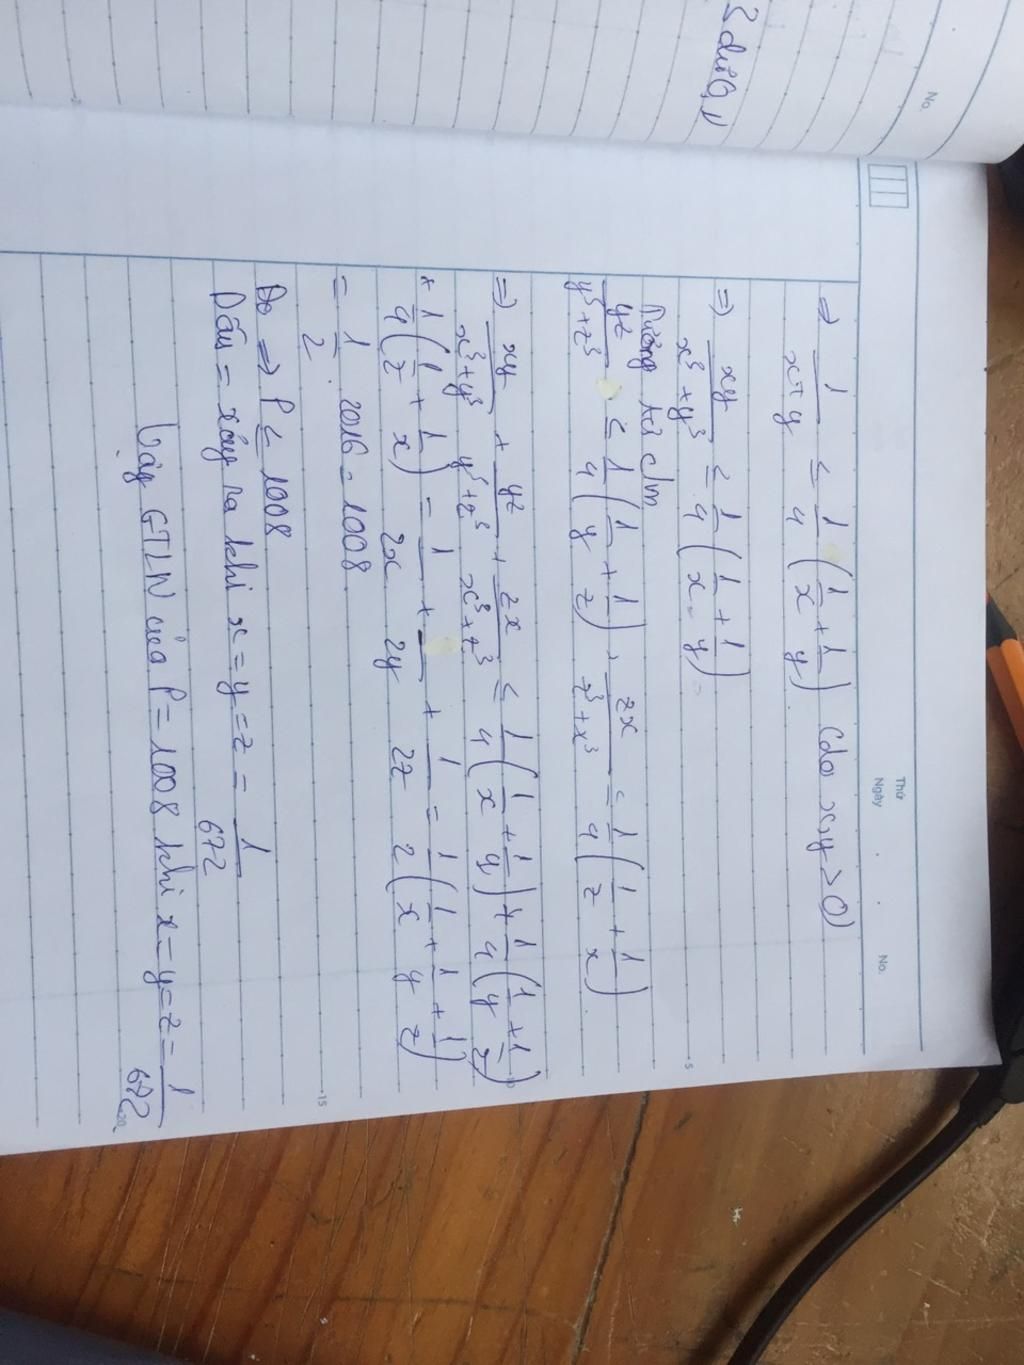 No.
Thứ
Ngày
No.
=> 1/(x+y) ≤ 1/4 (1/x + 1/y) (do x,y > 0)
=> xy/(x³+y³) ≤ 1/4 (1/x + 1/y)
5
Tương tự c/m
yz/(y³+z³) ≤ 1/4 (1/y + 1/z), zx/(z³+x³) ≤ 1/4 (1/z + 1/x)
=> xy/(x³+y³) + yz/(y³+z³) + zx/(x³+z³) ≤ 1/4 (1/x + 1/y) + 1/4 (1/y + 1/z)
+ 1/4 (1/z + 1/x) = 1/2x + 1/2y + 1/2z = 1/2 (1/x + 1/y + 1/z)
= 1/2 2016 = 1008
15
=> P ≤ 1008
Dấu = xảy ra khi x = y = z = 1/672
Vậy GTLN của P = 1008 khi x = y = z = 1/672
20